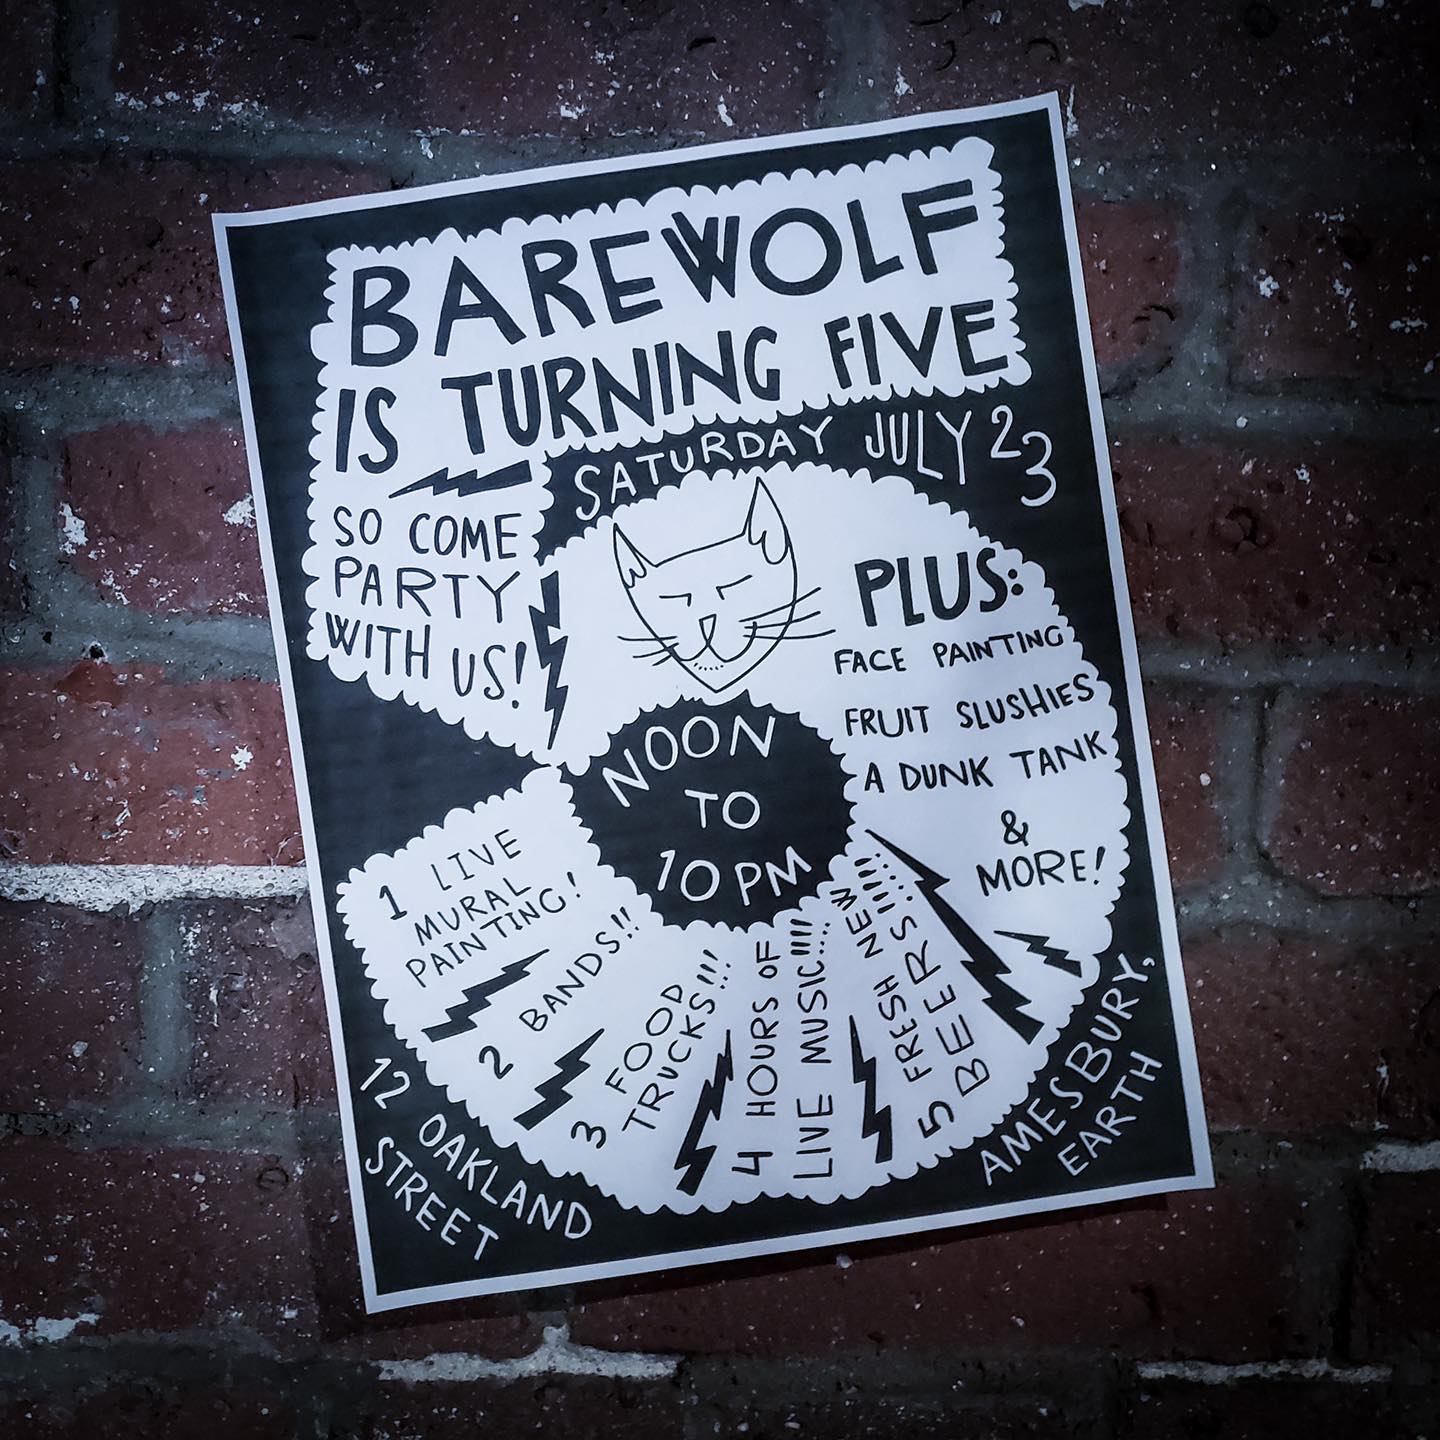 BAREWOLF
IS TURNING FIVE
SATURDAY JULY 23
SO COME
PARTY
WITH US!
PLUS:
FACE PAINTING
FRUIT SLUSHIES
A DUNK TANK
&
MORE!
NOON
TO
10 PM
1 LIVE
MURAL
PAINTING!
2 BANDS!!
3 FOOD
TRUCKS!!!
4 HOURS OF
LIVE MUSIC!!!!
5 FRESH NEW
BEERS!!!!!
12 OAKLAND
STREET
AMESBURY,
EARTH